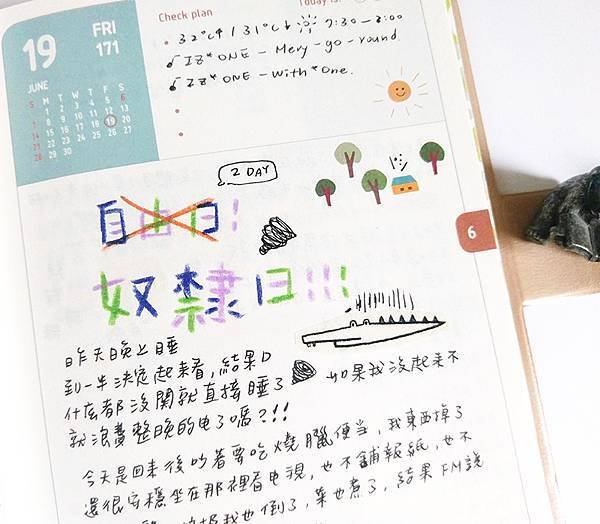 19
FRI
171
JUNE
S M T W T F S
1 2 3 4 5 6
7 8 9 10 11 12 13
14 15 16 17 18 19 20
21 22 23 24 25 26 27
28 29 30
Check plan
Today is
32°C↑ / 31°C↓ 7:30 - 8:00
IZ*ONE - Merry-go-round.
IZ*ONE - With*One.
2 DAY
自由日!
奴隸日!!!
6
昨天晚上睡
到一半決定起來看,結果D
什麼都沒關就直接睡了 如果我沒起來不
就浪費整晚的电了嗎?!!
今天是回來後吵着要吃燒臘便当,我東西掉了
還很安穩坐在那裡看电視,也不鋪報紙,也不
我也倒了,菜也煮了,結果FM說